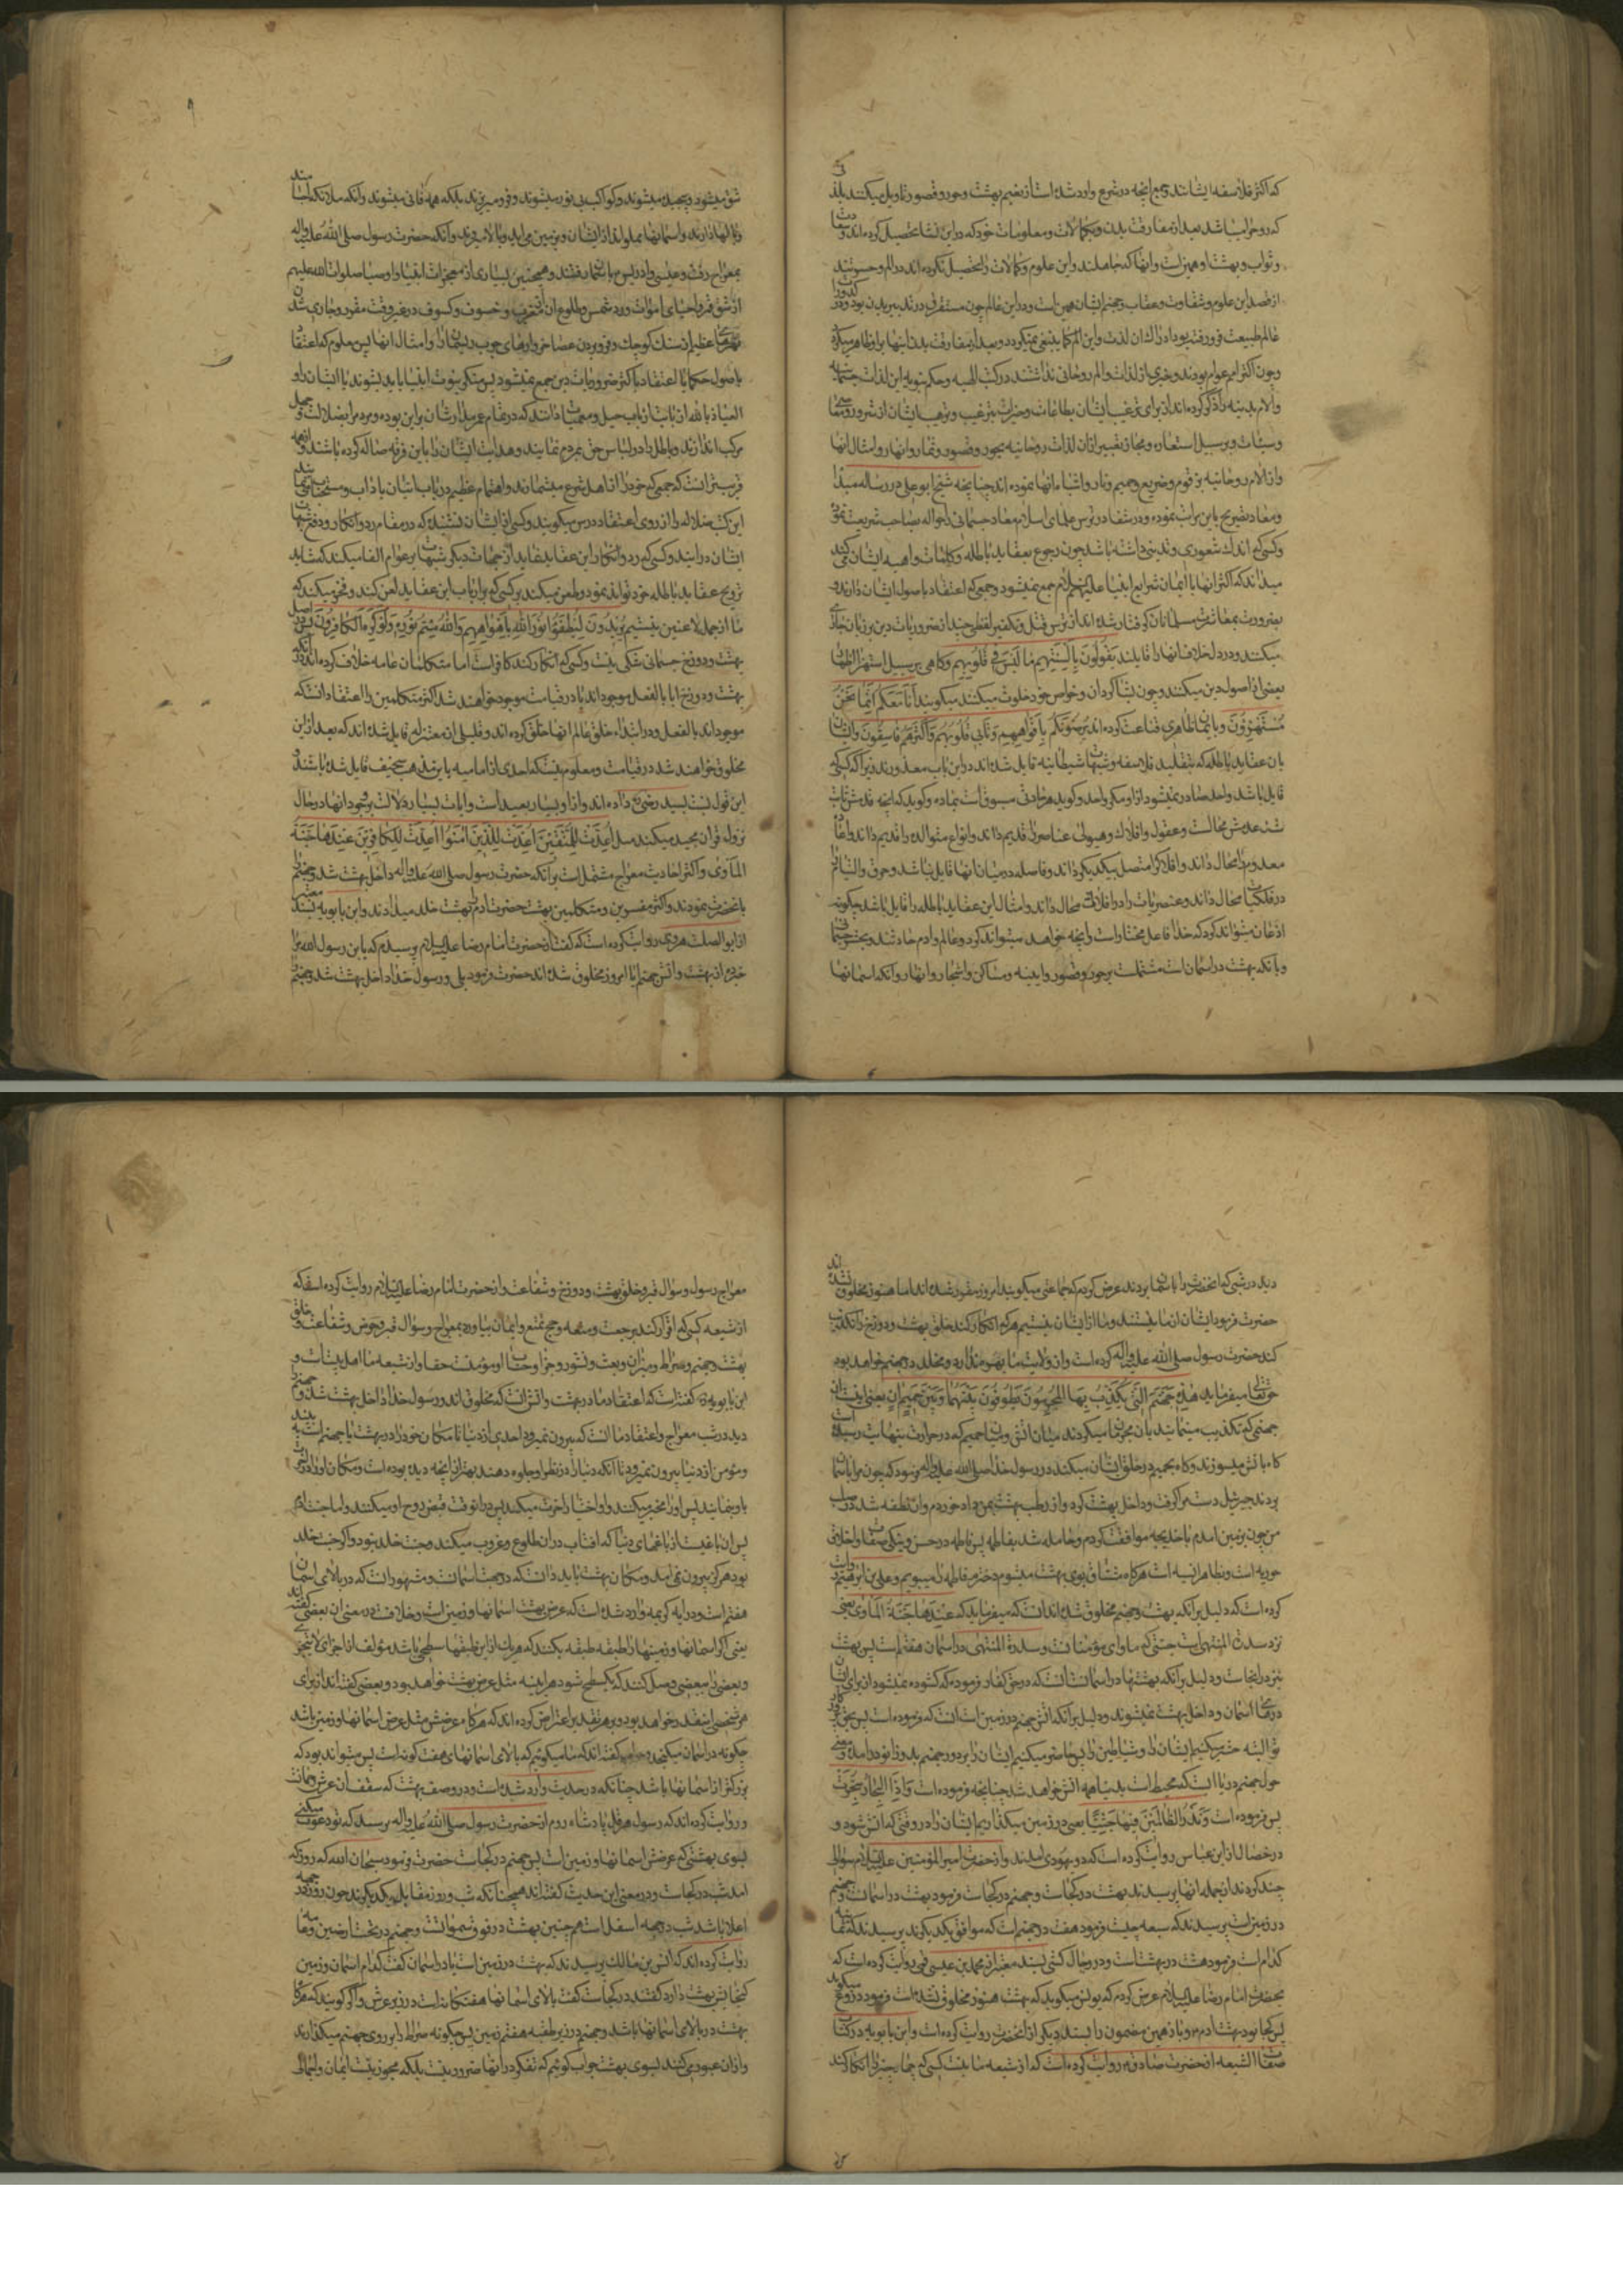 که اکثر فلاسفه ایشانند جمیع آنچه در شرع وارد شده است از نعیم بهشت و حور و قصور تاویل میکنند بلذ
که روح را میباشد بعد از مفارقت بدن و بکمالات و معلومات خود که در این نشا تحصیل کرده اند و سعادت
و ثواب و بهشت او همین است و آنها که جاهلند و این علوم و کمالات را تحصیل نکرده اند در الم و حسرتند
از ضد این علوم و شقاوت و عقاب و جهنم ایشان همین است و در این عالم چون مستغرق در تدبیر بدن بود و در
عالم طبیعت فرو رفته بود ادراک آن لذت و این الم کما ینبغی نمیکرد و بعد از مفارقت بدن اینها بر او ظاهر میگردد
و چون اکثر عوام بودند و خبری از لذات و الم روحانی نداشتند در کتب الهیه و حکم نبویه این لذات جسمانیه
و آلام بدنیه را ذکر کرده اند از برای ترغیب ایشان بطاعات و خیرات و ترهیب ایشان از شرور و معاصی
و سیئات و بر سبیل استعاره و مجاز تعبیر از آن لذات روحانیه بحور و قصور و ثمار و انهار و امثال آنها
و از آلام روحانیه بزقوم و ضریع و حمیم و نار و اشباه آنها نموده اند چنانچه شیخ ابو علی در رساله مبدأ
و معاد تصریح باین مراتب نموده و در شفا از ترس علمای اسلام معاد جسمانی را حواله بصاحب شریعت نموده
و کسی که اندک شعوری و تدینی داشته باشد چون رجوع بعقاید باطله و کلمات واهیه ایشان می کند
میداند که اکثر آنها با ایمان بشرایع انبیا علیهم السلام جمع نمیشود و جمعی که اعتقاد باصول ایشان دارند و
بضرورت بمعاشرت مسلمانان گرفتار شده اند از ترس قتل و تکفیر لفظی چند از ضروریات دین بر زبان جاری
میکنند و در دل خلاف آنها را قایلند یقولون بالسنتهم ما لیس فی قلوبهم و گاهی بر سبیل استهزا اظهار
بعضی از اصول دین میکنند و چون با شاگردان و خواص خود خلوت میکنند میگویند انا معکم انما نحن
مستهزؤن و بایمان ظاهری قناعت کرده اند یرضونکم بافواههم و تابی قلوبهم و اکثرهم فاسقون و ایشان
بان عقاید باطله که بتقلید فلاسفه و شبهات شیطانیه قایل شده اند در این باب معذورند زیرا که کسی که
قایل باشد واحد صادر نمیشود از او مگر واحد و گوید هر حادثی مسبوق است بماده و گوید که آنچه قدمش ثابت
شد عدمش محال است و عقول و افلاک و هیولی عناصر را قدیم داند و انواع متوالده را قدیم داند و اعاده
معدوم را محال داند و افلاک را متصل بیکدیگر داند و فاصله در میان آنها قایل نباشد و خرق و التیام
در فلکیات محال داند و عنصریات را در افلاک محال داند و امثال این عقاید باطله را قایل باشد چگونه
اذعان میتواند کرد که خدا فاعل مختار است و آنچه خواهد میتواند کرد و عالم و آدم حادثند و بحشر جسمانی
و بآنکه بهشت در آسمان است مشتمل است بر حور و قصور و ابنیه و مساکن و اشجار و انهار و آنکه آسمانها
شق میشود و پیچیده میشوند و کواکب بی نور میشوند و فرو میریزند بلکه همه فانی میشوند و آنکه ملائکه اجسامند
و بالها دارند و آسمانها مملو اند از ایشان و بزمین می آیند و بالا میروند و آنکه حضرت رسول صلی الله علیه و اله
بمعراج رفت و عیسی و ادریس بآسمان رفتند و همچنین بسیاری از معجزات انبیا و اوصیا صلوات الله علیهم
از شق قمر و احیای اموات و رد شمس و طلوع آن از مغرب و خسوف و کسوف در غیر وقت مقرر و جاری شدن
نهرهای عظیم از سنک کوچک و فرو بردن عصا خروارهای چوب و ریسمان را و امثال آنها پس معلوم که اعتقاد
باصول حکما با اعتقاد باکثر ضروریات دین جمع نمیشود پس منکر نبوت انبیا باید بشوند یا ایشان را و
العیاذ بالله از باب ارباب حیل و معمیات دانند که در تمام عمر مدار ایشان بر این بوده و مردم را بضلالت و جهل
مرکب اندازند و باطل را در لباس حق بمردم نمایند و هدایت ایشان را باین فرقه ضاله کرده باشند و از همه
غریبتر آنست که جمعی که خود را از اهل شرع میشمارند و اهتمام عظیم در باب اتیان بآداب و مستحبات مینمایند
این کتب ضلاله را از روی اعتقاد درس میگویند و کسی از ایشان نشنیده که در مقام رد و انکار و دفع شبهات
ایشان در آیند و کسی که رد و انکار این عقاید نماید از جهات دیگر شبهات بر عوام القا میکنند که شاید
ترویج عقاید باطله خود توانند نمود و طعن میکنند بر کسی که بر ارباب این عقاید لعن کند و فخر میکنند که
ما از جمله لاعنین نیستیم یریدون لیطفؤا نور الله بافواههم و الله متم نوره و لو کره الکافرون پس در اصل
بهشت و دوزخ جسمانی شکی نیست و کسی که انکار کند کافر است اما متکلمان عامه خلاف کرده اند در آنکه
بهشت و دوزخ ایا بالفعل موجود اند یا در قیامت موجود خواهند شد اکثر متکلمین را اعتقاد آنست که
موجود اند بالفعل و در ابتداء خلق عالم آنها خلق کرده اند و قلیلی از معتزله قایل شده اند که بعد از این
مخلوق خواهند شد در قیامت و معلوم نیست که احدی از امامیه باین مذهب سخیف قایل شده باشند و
این قول نسبت بسید رضی ره داده اند و از او بسیار بعید است و آیات بسیار دلالت بر وجود آنها در حال
نزول قرآن مجید میکنند مثل اعدت للمتقین اعدت للذین امنوا اعدت للکافرین عندها جنة
المأوی و اکثر احادیث معراج مشتمل است بر آنکه حضرت رسول صلی الله علیه و اله داخل بهشت شد و جهنم
بانحضرت نمودند و اکثر مفسرین و متکلمین بهشت حضرت آدم را بهشت خلد میدانند و ابن بابویه بسند معتبر
از ابو الصلت هروی روایت کرده است که گفت از حضرت امام رضا علیه السلام پرسیدم که یابن رسول الله مرا
خبر ده از بهشت و آتش جهنم ایا امروز مخلوق شده اند حضرت فرمود بلی و رسول خدا داخل بهشت شد و جهنم
دید در شبی که آنحضرت را بآسمان بردند عرض کردم که جماعتی میگویند امروز مقدر شده اند اما هنوز مخلوق نشده اند
حضرت فرمود ایشان از ما نیستند و ما از ایشان نیستیم هر که انکار کند خلق بهشت و دوزخ را تکذیب
کند حضرت رسول صلی الله علیه و اله کرده است و از ولایت ما بهره ندارد و مخلد در جهنم خواهد بود
حقتعالی میفرماید هذه جهنم التی یکذب بها المجرمون یطوفون بینها و بین حمیم آن یعنی اینست آن
جهنمی که تکذیب مینمایند بآن مجرمان میگردند میان آتش و میان حمیم که در حرارت بنهایت رسیده است
گاه باتش میسوزند و گاه بحمیم در حلق ایشان میکنند و رسول خدا صلی الله علیه و اله فرمود که چون مرا بآسمان
بردند جبرئیل دست مرا گرفت و داخل بهشت کرد و از رطب بهشت بمن داد خوردم و آن نطفه شد در صلب
من چون بزمین آمدم با خدیجه مواقعت کردم و حامله شد بفاطمه پس فاطمه در حسن و نیکی صفات و اخلاق
حوریه است و بظاهر انسیه است هرگاه مشتاق بوی بهشت میشوم دخترم فاطمه را میبویم و علی بن ابراهیم روایت
کرده است که دلیل بر آنکه بهشت و جهنم مخلوق شده اند آنست که میفرماید که عندها جنة المأوی یعنی
نزد سدرة المنتهی است جنتی که ماوای مؤمنانست و سدرة المنتهی در آسمان هفتم است پس بهشت
نیز در آنجاست و دلیل بر آنکه بهشتها در آسمانست آنست که در حق کفار فرموده که گشوده نمیشود از برای ایشان
درهای آسمان و داخل بهشت نمیشوند و دلیل بر آنکه آتش جهنم در زمین است آنست که فرموده است پس بحق پروردگار
تو البته حشر میکنیم ایشان را و شیاطین را پس حاضر میکنیم ایشان را بر دور جهنم بدو زانو در آمده و معنی
حول جهنم دریا است که محیط است بدنیا همه آتش خواهد شد چنانچه فرموده است و اذا البحار سجرت
پس فرموده است و نذر الظالمین فیها جثیا یعنی در زمین میگذاریم ایشان را در وقتی که آتش شود و
در خصال از ابن عباس روایت کرده است که دو یهودی آمدند و از حضرت امیر المؤمنین علیه السلام سؤالی
چند کردند از جمله آنها پرسیدند بهشت در کجاست و جهنم در کجاست فرمود بهشت در آسمانست و جهنم
در زمین است پرسیدند که سبعه چیست فرمود هفت در جهنم است که موافق یکدیگرند پرسیدند که ثمانیه
کدام است فرمود هشت در بهشت است و در رجال کشی بسند معتبر از محمد بن عیسی قمی روایت کرده است که
بحضرت امام رضا علیه السلام عرض کردم که یونس میگوید که بهشت هنوز مخلوق نشده است فرمود دروغ میگوید
پس کجا بود بهشت آدم و باز همین مضمون را بسند دیگر از آنحضرت روایت کرده است و ابن بابویه در کتاب
صفات الشیعه از حضرت صادق ع روایت کرده است که از شیعه ما نیست کسی که چهار چیز را انکار کند
معراج رسول و سؤال قبر و خلق بهشت و دوزخ و شفاعت و از حضرت امام رضا علیه السلام روایت کرده است که
از شیعه کسی که اقرار کند برجعت و متعه و حج تمتع و ایمان بیاورد بمعراج و سؤال قبر و حوض و شفاعت و خلق
بهشت و جهنم و صراط و میزان و بعث و نشور و جزا و حساب او مؤمنست حقا و از شیعه ما اهل بیت است و
ابن بابویه ره گفته است که اعتقاد ما در بهشت و آتش آنست که مخلوق اند و رسول خدا داخل بهشت شد و جهنم
دید در شب معراج و اعتقاد ما آنست که بیرون نمیرود احدی از دنیا تا مکان خود را در بهشت یا جهنم به بیند
و مؤمن از دنیا بیرون نمیرود تا آنکه دنیا را در نظر او جلوه دهند بهتر از آنچه دیده بوده است و مکان او را در آخرت
باو بنمایند پس او را مخیر میکنند و او اختیار آخرت میکند پس در آنوقت قبض روح او میکنند و اما جنت آدم
پس آن باغیست از باغهای دنیا که آفتاب در آن طلوع و غروب میکند و جنت خلد نبود و اگر جنت خلد
بود هرگز بیرون نمی آمد و مکان بهشت باید دانست که در جهت آسمانست و مشهور آنست که در بالای آسمان
هفتم است و در آیه کریمه وارد شده است که عرض بهشت آسمانها و زمین است و خلافست در معنی آن بعضی گفته اند
یعنی اگر آسمانها و زمینها را طبقه طبقه بکنند که هر یک از این طبقها سطحی باشد مؤلف از اجزای لا یتجزی
و بعضی را ببعضی وصل کنند که یکسطح شود هراینه مثل عرض بهشت خواهد بود و بعضی گفته اند از برای
هر شخصی اینقدر خواهد بود و بر هر تقدیر اعتراض کرده اند که هرگاه عرضش مثل عرض آسمانها و زمین باشد
چگونه در آسمان میگنجد و جواب گفته اند که ما میگوئیم که بالای آسمانهای هفت گونه است پس میتواند بود که
بزرگتر از آسمانها باشد چنانکه در حدیث وارد شده است و در وصف بهشت که سقف آن عرش رحمان است
و روایت کرده اند که رسول هرقل پادشاه روم از حضرت رسول صلی الله علیه و اله پرسید که تو دعوت میکنی
بسوی بهشتی که عرضش آسمانها و زمین است پس جهنم در کجاست حضرت فرمود سبحان الله که روز که
آمد شب در کجاست و در معنی این حدیث گفته اند همچنانکه شب و روز مقابل یکدیگرند چون روز در جهة
اعلا باشد شب در جهة اسفل است همچنین بهشت در فوق سموات است و جهنم در تحت ارضین و معا
روایت کرده اند که از انس بن مالک پرسیدند که بهشت در زمین است یا در آسمان گفت کدام آسمان و زمین
گنجایش بهشت دارد گفتند در کجاست گفت بالای آسمانها هفتگانه است در زیر عرش و اگر گویند که هرگاه
بهشت در بالای آسمانها باشد و جهنم در زیر طبقه هفتم زمین پس چگونه صراط را بر روی جهنم میگذارند
و از آن عبور میکنند بسوی بهشت جواب گوئیم که تفکر در اینها ضرور نیست بلکه مجوز نیست ایمان و اجمالی